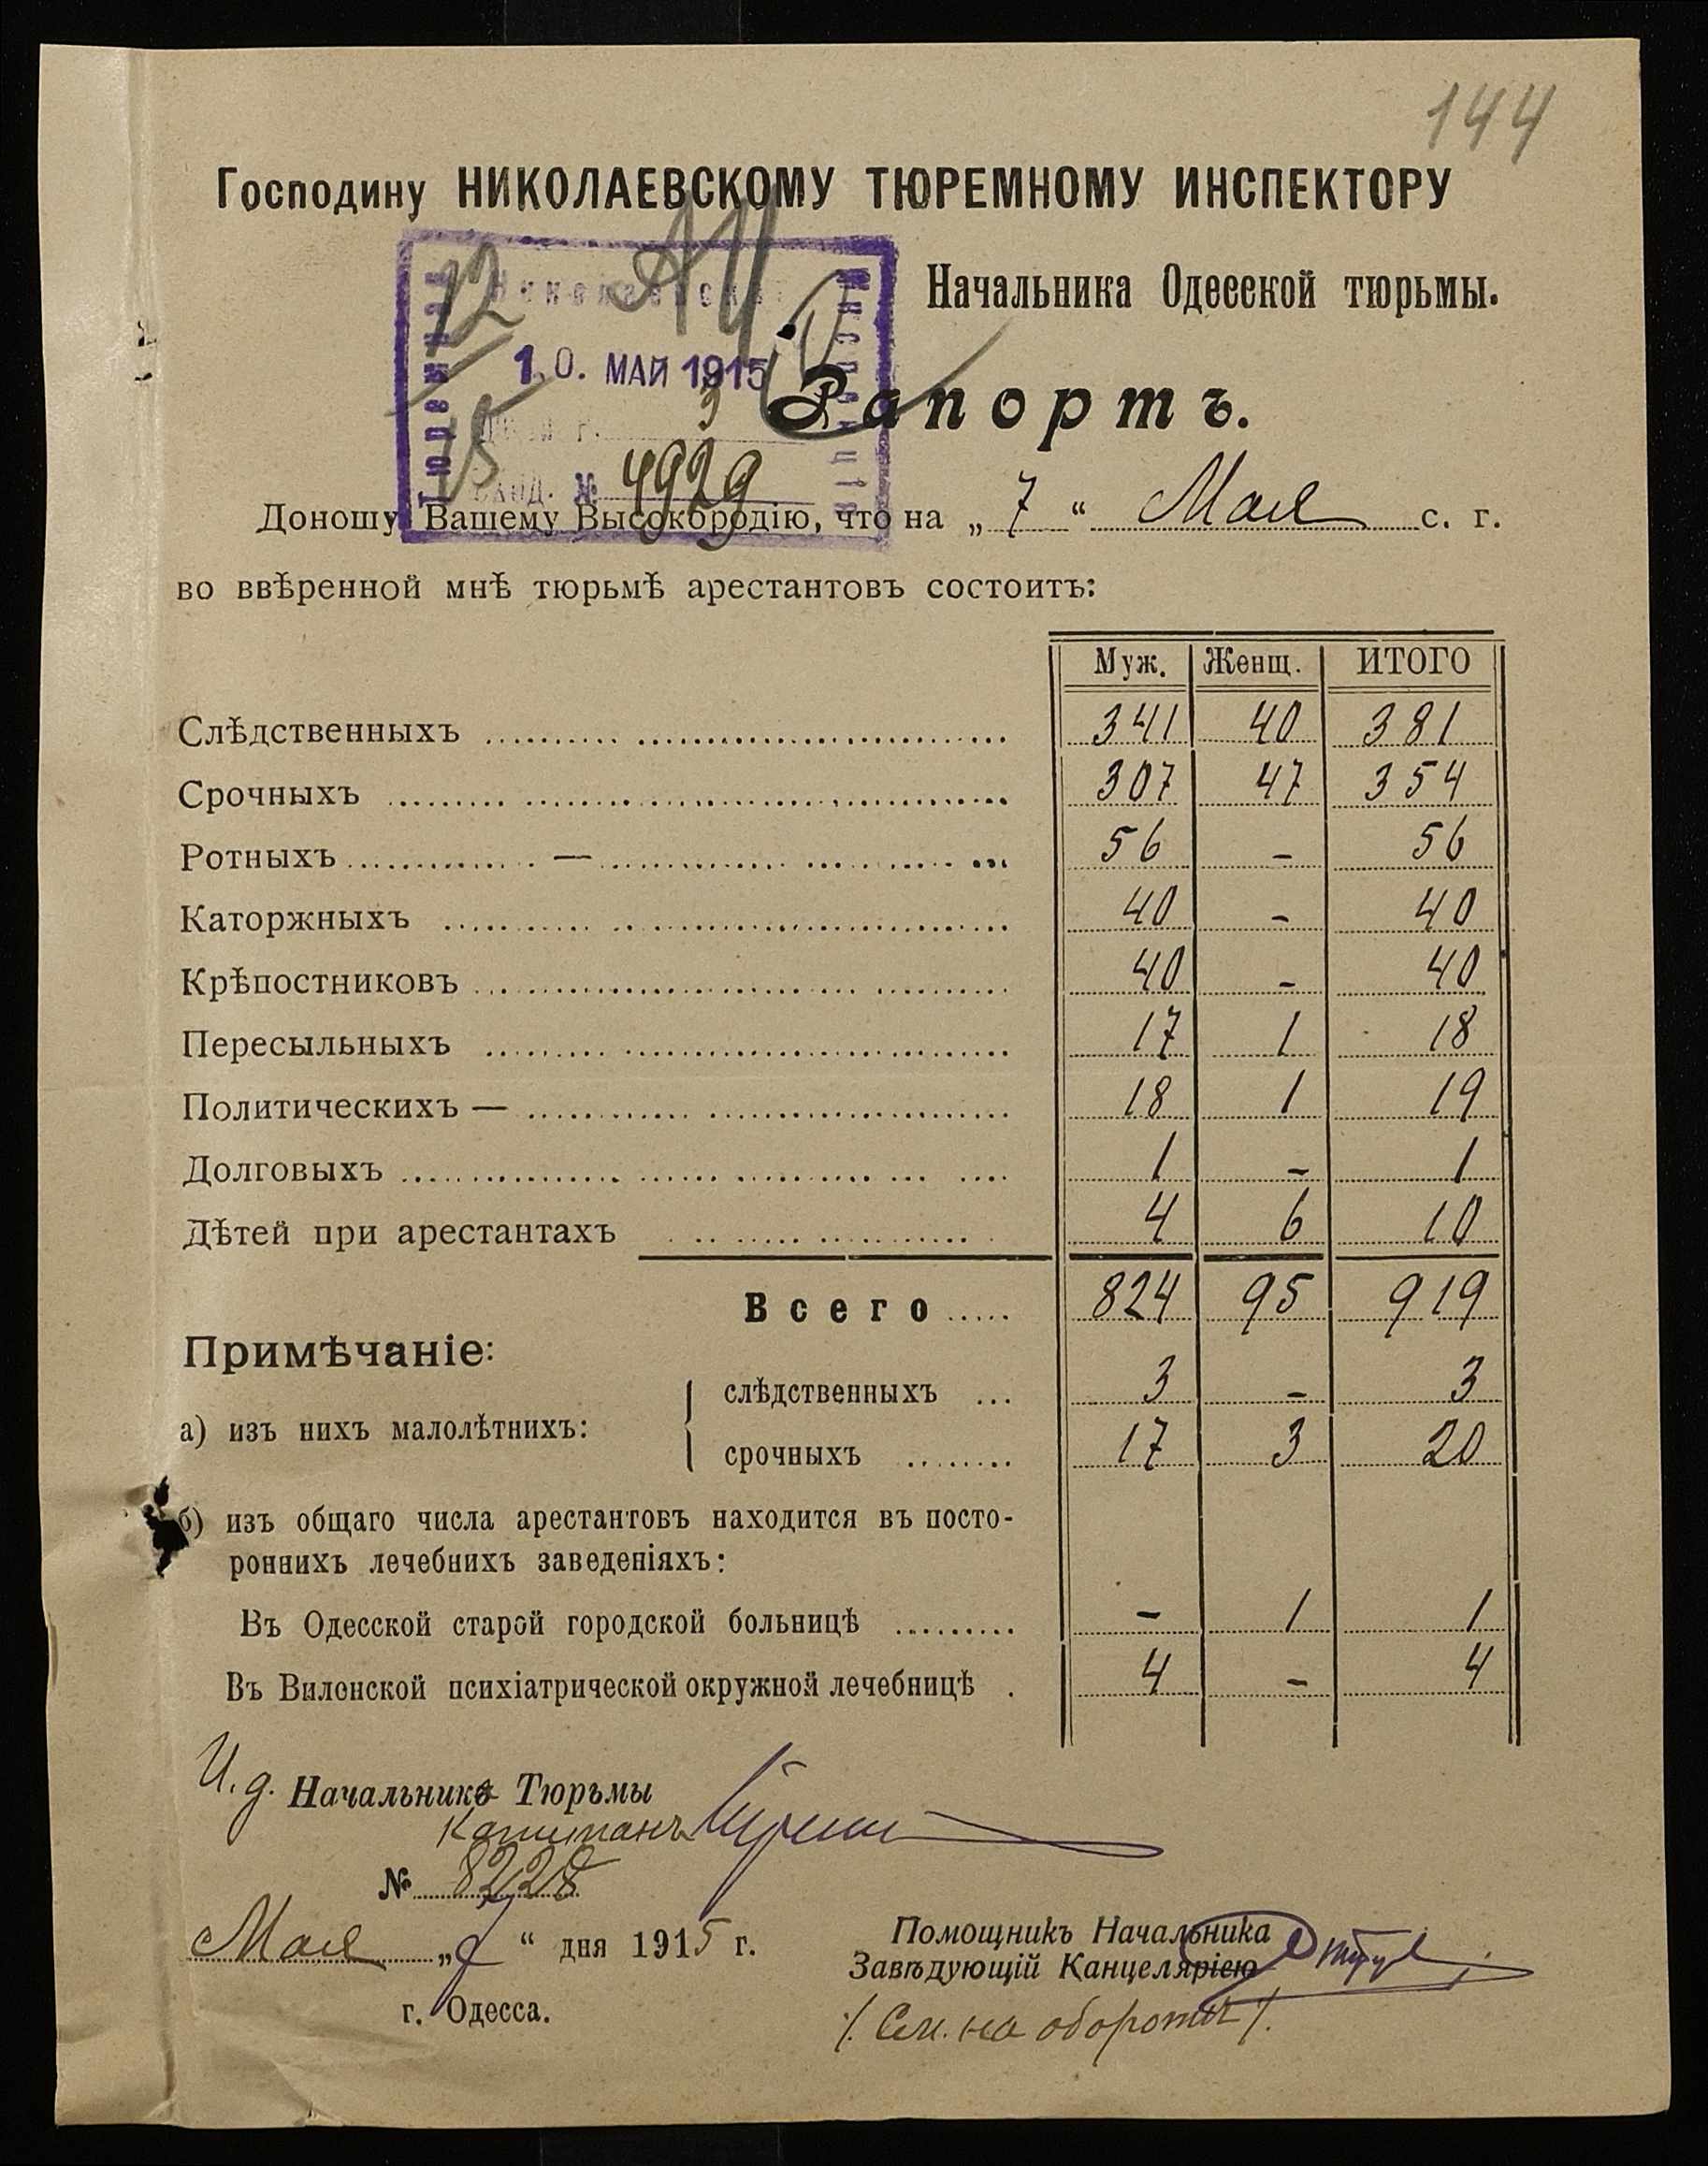 144
Господину НИКОЛАЕВСКОМУ ТЮРЕМНОМУ ИНСПЕКТОРУ
Начальника Одесской тюрьмы.
10. МАЙ 1915
№ 4929
Рапортъ.
Доношу Вашему Высокородію, что на „ 7 “ Мая с. г.
во ввѣренной мнѣ тюрьмѣ арестантовъ состоитъ:
Муж. Женщ. ИТОГО
Слѣдственныхъ 341 40 381
Срочныхъ 307 47 354
Ротныхъ — 56 - 56
Каторжныхъ 40 - 40
Крѣпостниковъ 40 - 40
Пересыльныхъ 17 1 18
Политическихъ — 18 1 19
Долговыхъ 1 - 1
Дѣтей при арестантахъ 4 6 10
Всего 824 95 919
Примѣчаніе:
а) изъ нихъ малолѣтнихъ:
слѣдственныхъ 3 - 3
срочныхъ 17 3 20
б) изъ общаго числа арестантовъ находится въ посто-
роннихъ лечебнихъ заведеніяхъ:
Въ Одесской старой городской больницѣ - 1 1
Въ Виленской психіатрической окружной лечебницѣ 4 - 4
И. д. Начальника Тюрьмы
Капитанъ
№ 8228
Мая „ 7 “ дня 1915 г.
г. Одесса.
Помощникъ Начальника
Завѣдующій Канцеляріею
/. См. на оборотѣ /.